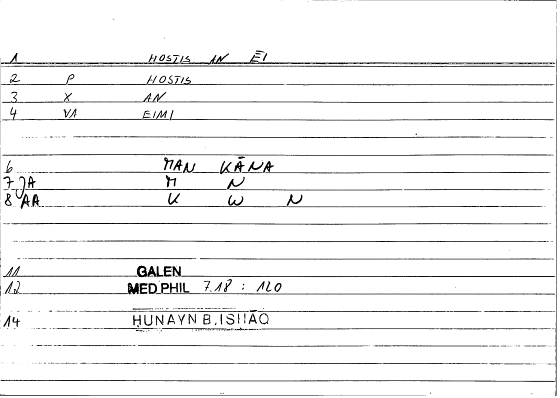 1 HOSTIS AN ĒI
2 P HOSTIS
3 X AN
4 VA EIMI
6 MAN KĀNA
7 JA M N
8 AA K W N
11 GALEN
12 MED PHIL 7.18 : 120
14 ḤUNAYN B. ISḤĀQ